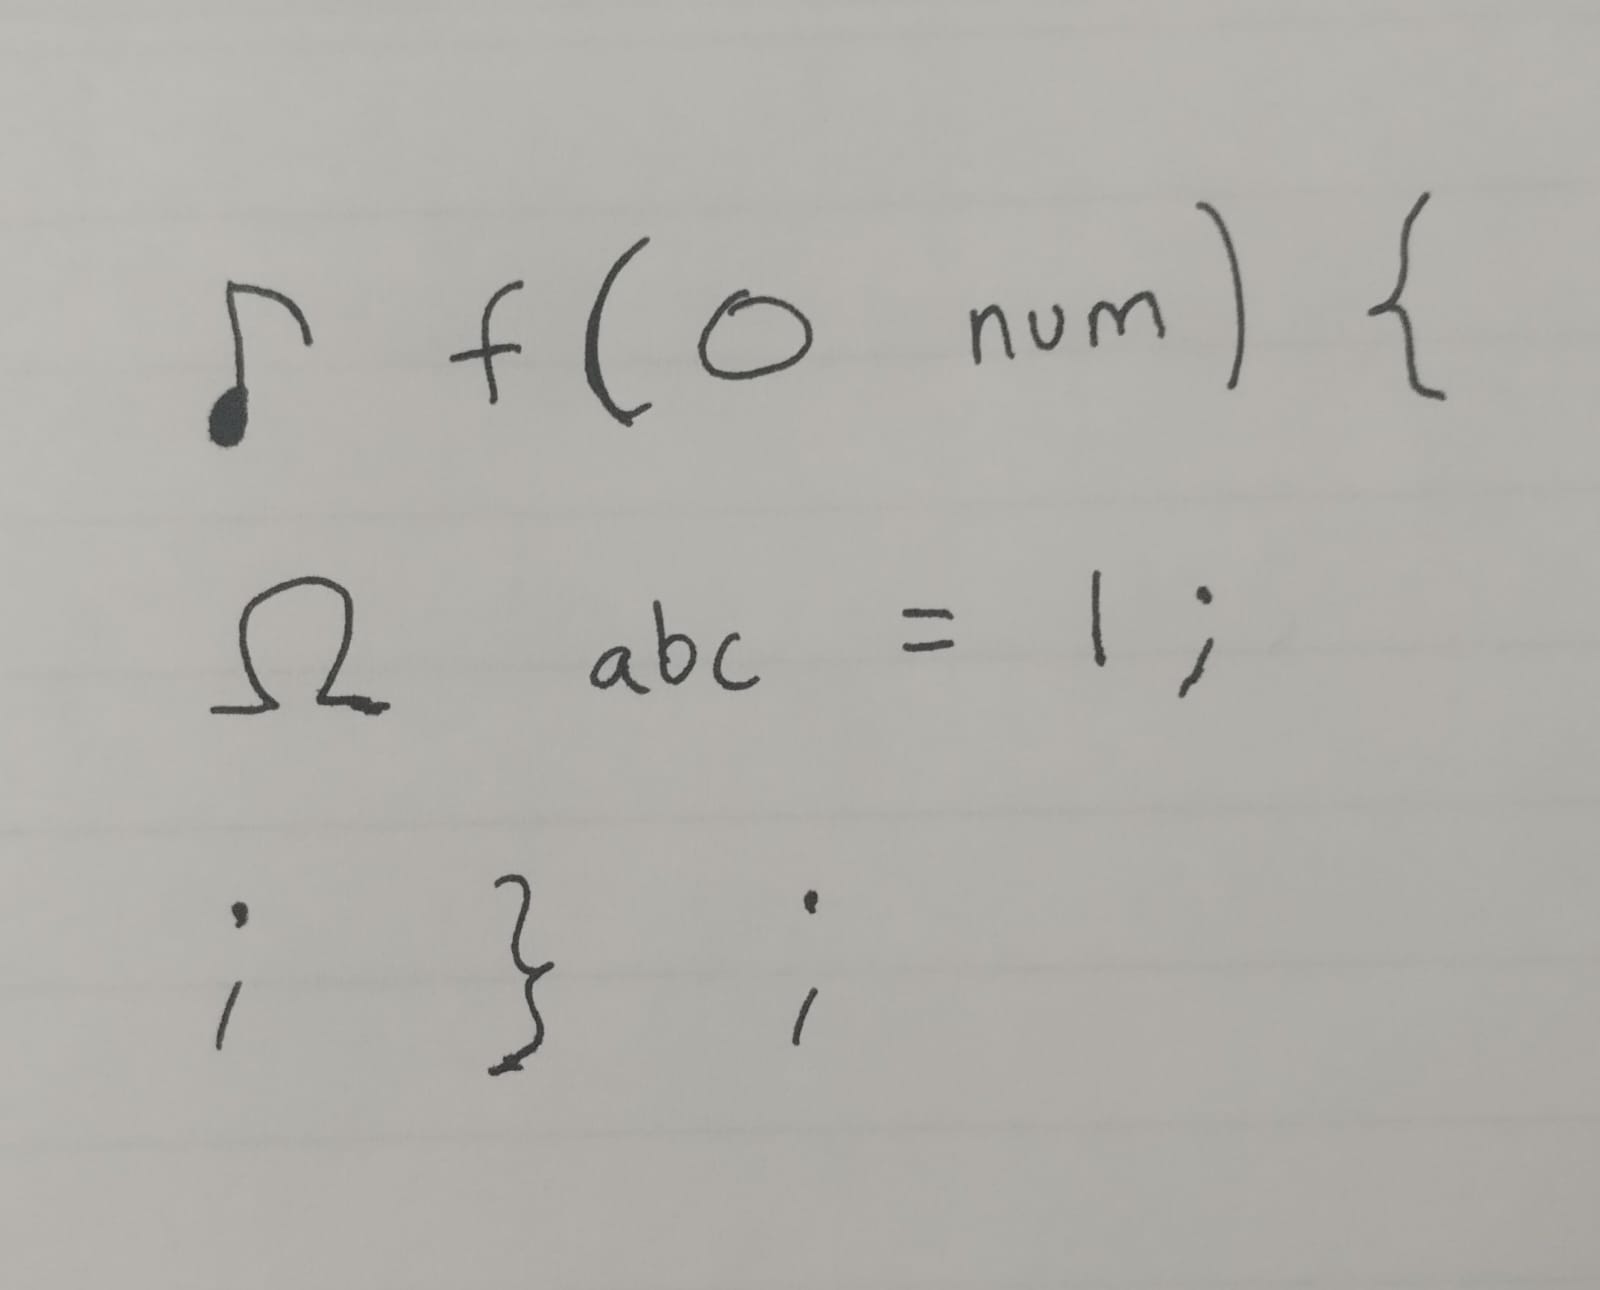 ♪ f(O num) {
Ω abc = 1;
; } ;